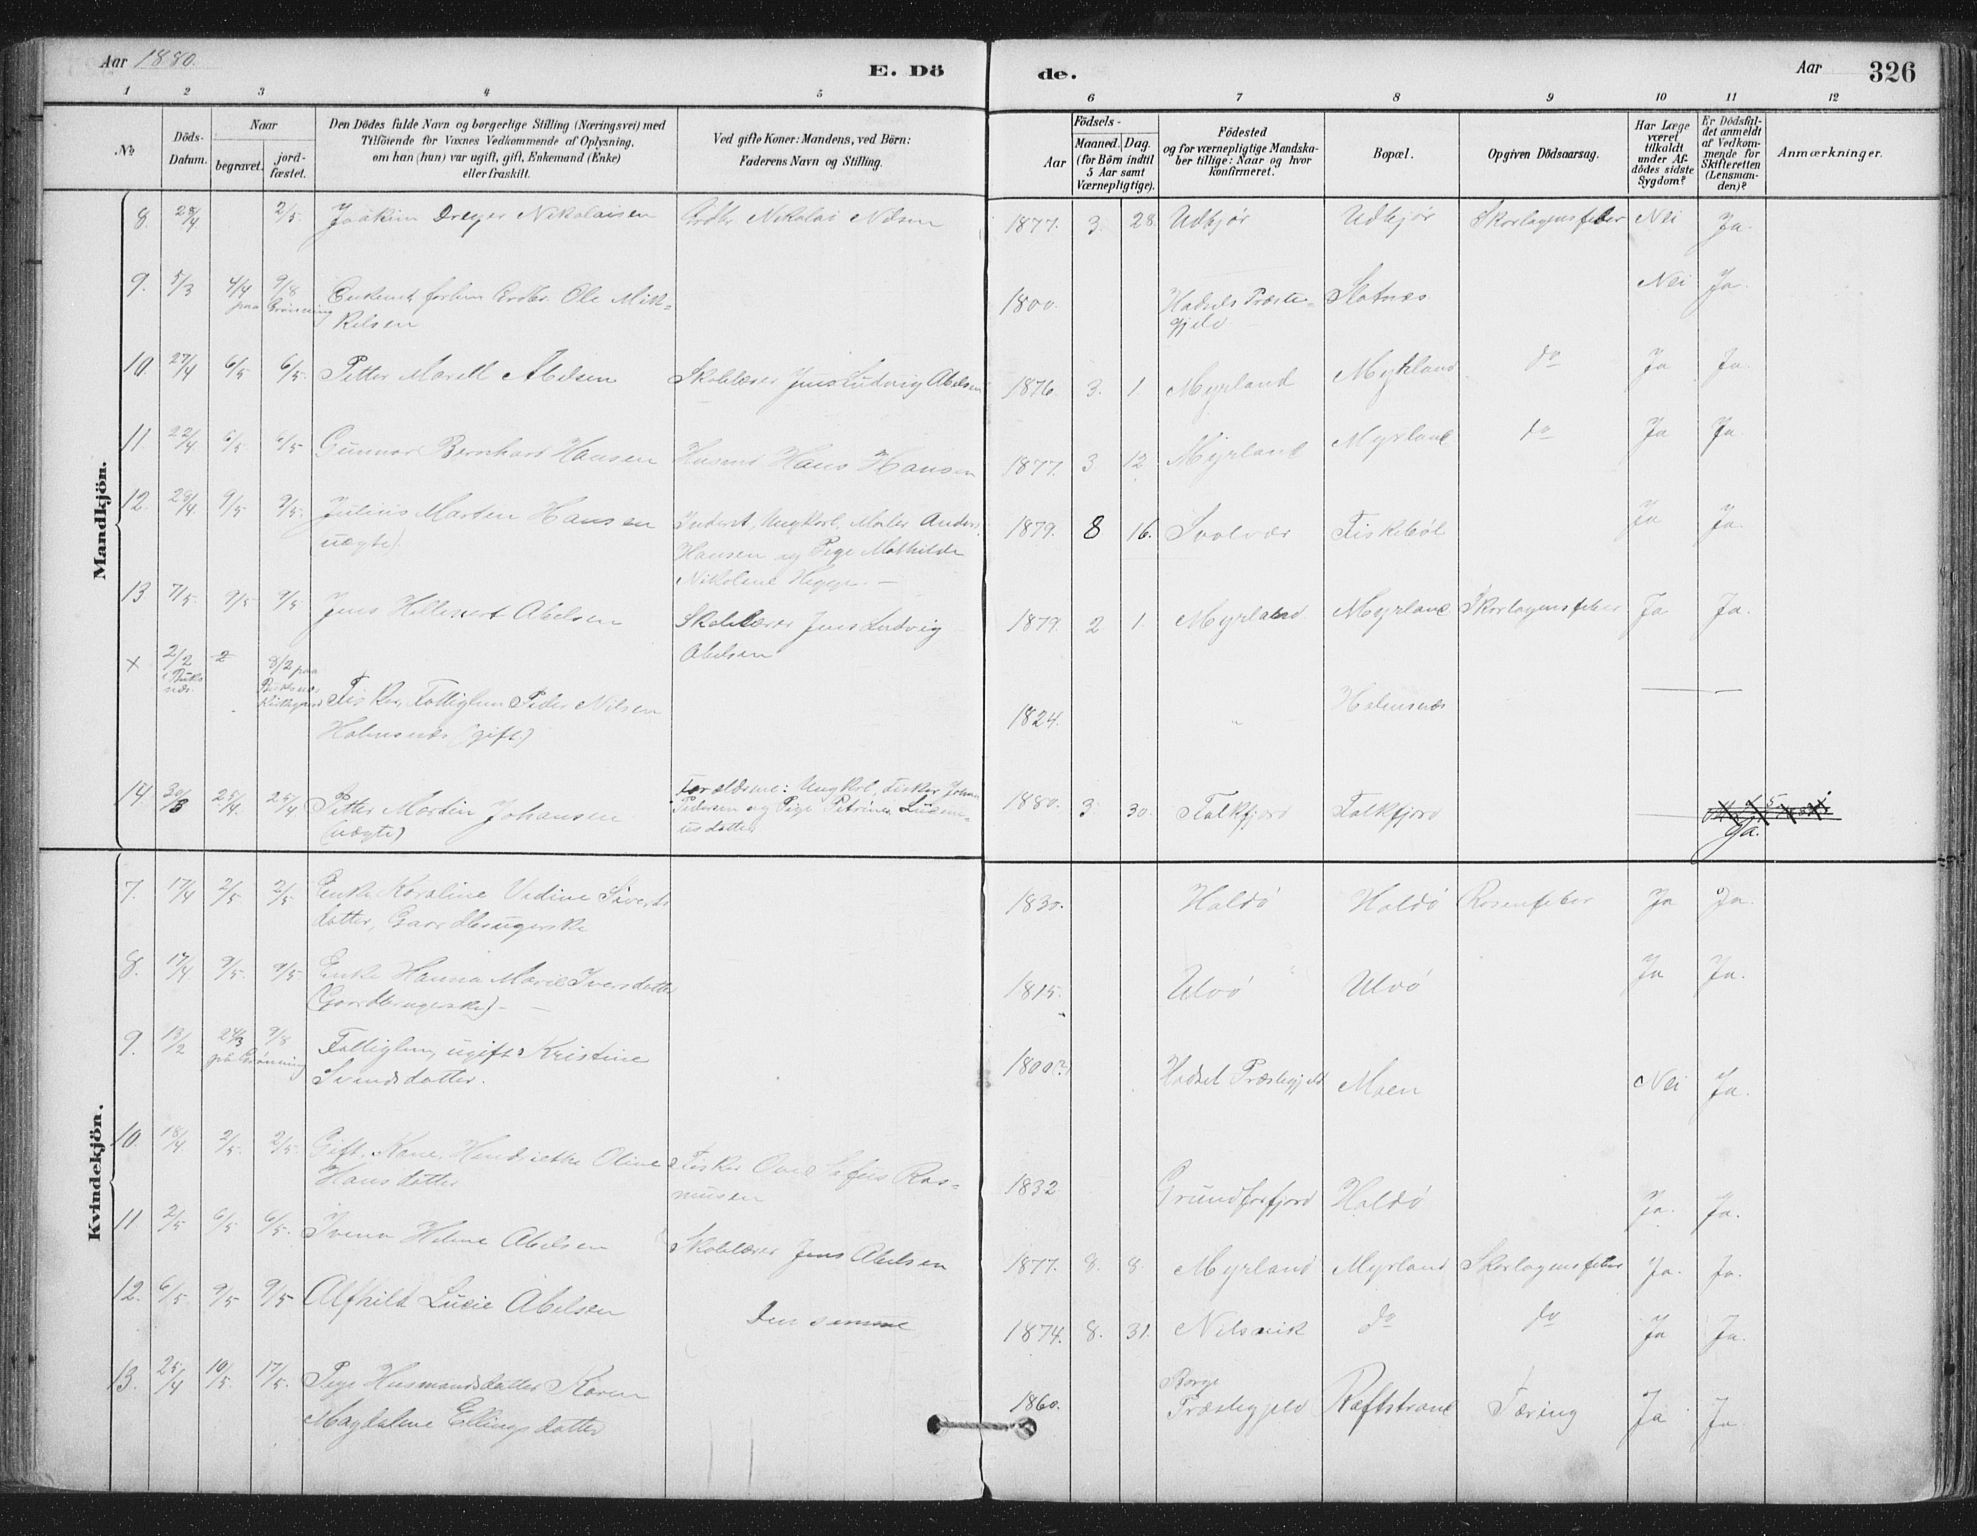 Aar 1880.
E. Dö
de.
Aar
326
1 2 3 4 5 6 7 8 9 10 11 12
No
Döds-
Datum.
Naar
begravet.
jord-
fæstet.
Den Dödes fulde Navn og borgerlige Stilling (Næringsvei) med
Tilföiende for Voxnes Vedkommende af Oplysning,
om han (hun) var ugift, gift, Enkemand (Enke)
eller fraskilt.
Ved gifte Koner: Mandens, ved Börn:
Faderens Navn og Stilling.
Födsels-
Aar
Maaned. Dag.
(for Börn indtil
5 Aar samt
Værnepligtige).
Födested
og for værnepligtige Mandska-
ber tillige: Naar og hvor
konfirmeret.
Bopæl.
Opgiven Dödsaarsag.
Har Læge
været
tilkaldt
under Af-
dödes sidste
Sygdom?
Er Dödsfal-
det anmeldt
af Vedkom-
mende for
Skifteretten
(Lensman-
den)?
Anmærkninger.
Mandkjön.
8. 28/4 2/5. Joakim Dreyer Nikolaisen Nikolai Nilsen 1877. 3. 28. Udkjør Udkjør Skarlagensfeber Nei Ja.
9. 5/3 4/4 9/8 Enkemd forhen Ole Mik- 1800. Hadsels Præste- Slotnæs Nei Ja.
paa Grönning
kelsen gjeld
10. 27/4 6/5 6/5. Petter Marell Abelsen Skolelærer Jens Ludvig Abelsen 1876. 3. 1. Myrland Myrland do Ja Ja.
11 22/4 6/5 6/5 Gunnar Bernhard Hansen Husmd Hans Hansen 1877. 3 12. Myrland Myrland do Ja Ja.
12. 28/4. 9/5 9/5. Julius Marten Hansen Ungkarl, Maler Anders 1879. 8 16. Svolvær Fiskebøl Ja Ja.
uægte) Hansen og Pige Mathilde
Nikoline Hegge. —
13 7/5. 9/5 9/5. Jens Hillesert Abelsen Skolelærer Jens Ludvig 1879. 2 1. Myrland Myrland Skarlagensfeber Ja Ja.
Abelsen
x 2/2 2 8/2 paa
i Buks-
næs. Buksnæs
Kirkegaard Fisker, Fattiglem Peder Nilsen 1824. " Holmsnæs —
Holmsnæs (gift)
14 30/3 25/4. 25/4 Petter Mortin Johansen Forældrene: Ungkrl, Fisker Johan 1880. 3. 30. Falkfjord Falkfjord — Ja.
(uægte) Pedersen og Pige Petrine
usdatter
Kvindekjön.
7. 17/4 2/5 2/5 Enke Karoline Vedine Siverts 1830. Haldö Haldö Rosenfeber Ja Ja.
datter, Gaardbrugerske
8. 17/4 9/5. 9/5 Enke Hanna Marie Iversdatter 1815. Ulvö Ulvö Ja Ja.
(Gaardbrugerske) —
9. 13/2 24/3 9/8 Fattiglem, ugift Kristine 1800(?) Hadsel Præstegjeld Moen Nei Ja.
Grönning
Svendsdatter.
10. 18/4 2/5. 2/5. Gift. Kone. Henriette Oline Fisker Ove Ras- 1832 Grundforfjord Haldö Ja. Ja.
Hansdatter musen
11. 2/5 6/5 6/5. Helene Abelsen Skolelærer Jens Abelsen 1877. 8. 8. Myrland Myrland Skarlagensfeber Ja. Ja.
12. 6/5. 9/5 9/5 Alfhild Lucie Abelsen Den samme 1874. 8. 31. Nilsvik do do Ja Ja.
13. 25/4 10/5. 17/5. Pige Husmandsdatter Karen 1860. Borge Raftstrand Tæring Ja Ja.
Magdalene Ellingsdatter Præstegjeld